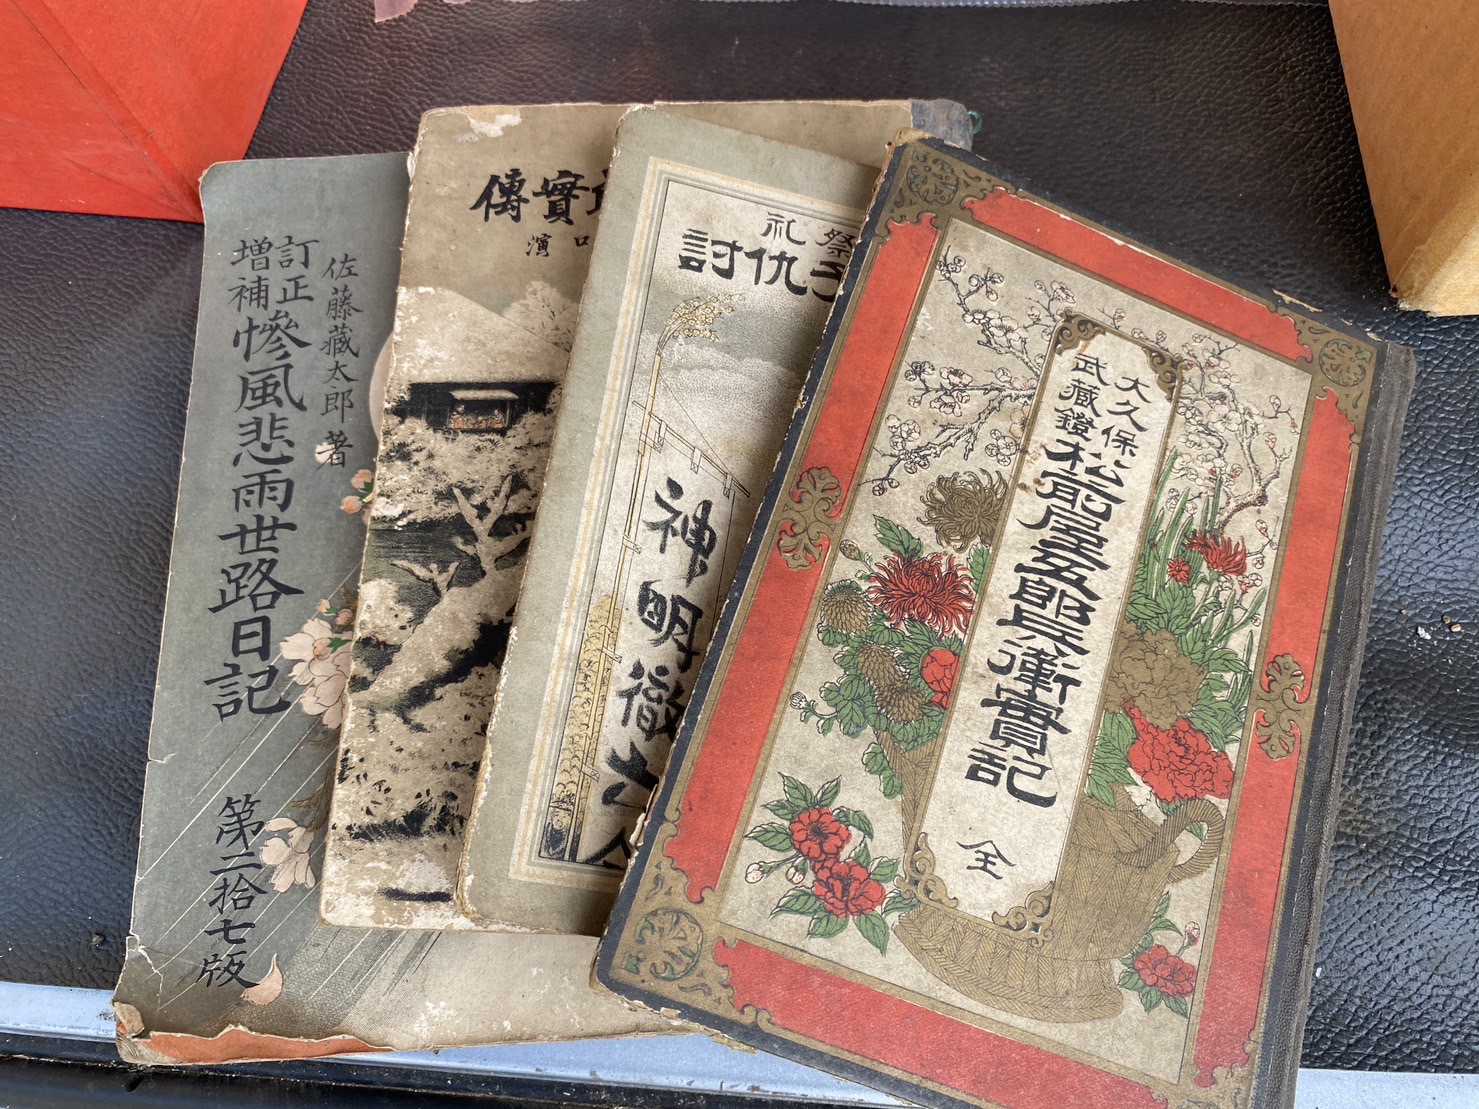 佐藤藏太郎著
訂正
增補
慘風悲雨世路日記
第二拾七版
實傳
口演
祭礼
仇討
神明徳之
大久保
武藏鐙
松前屋五郎兵衛實記
全